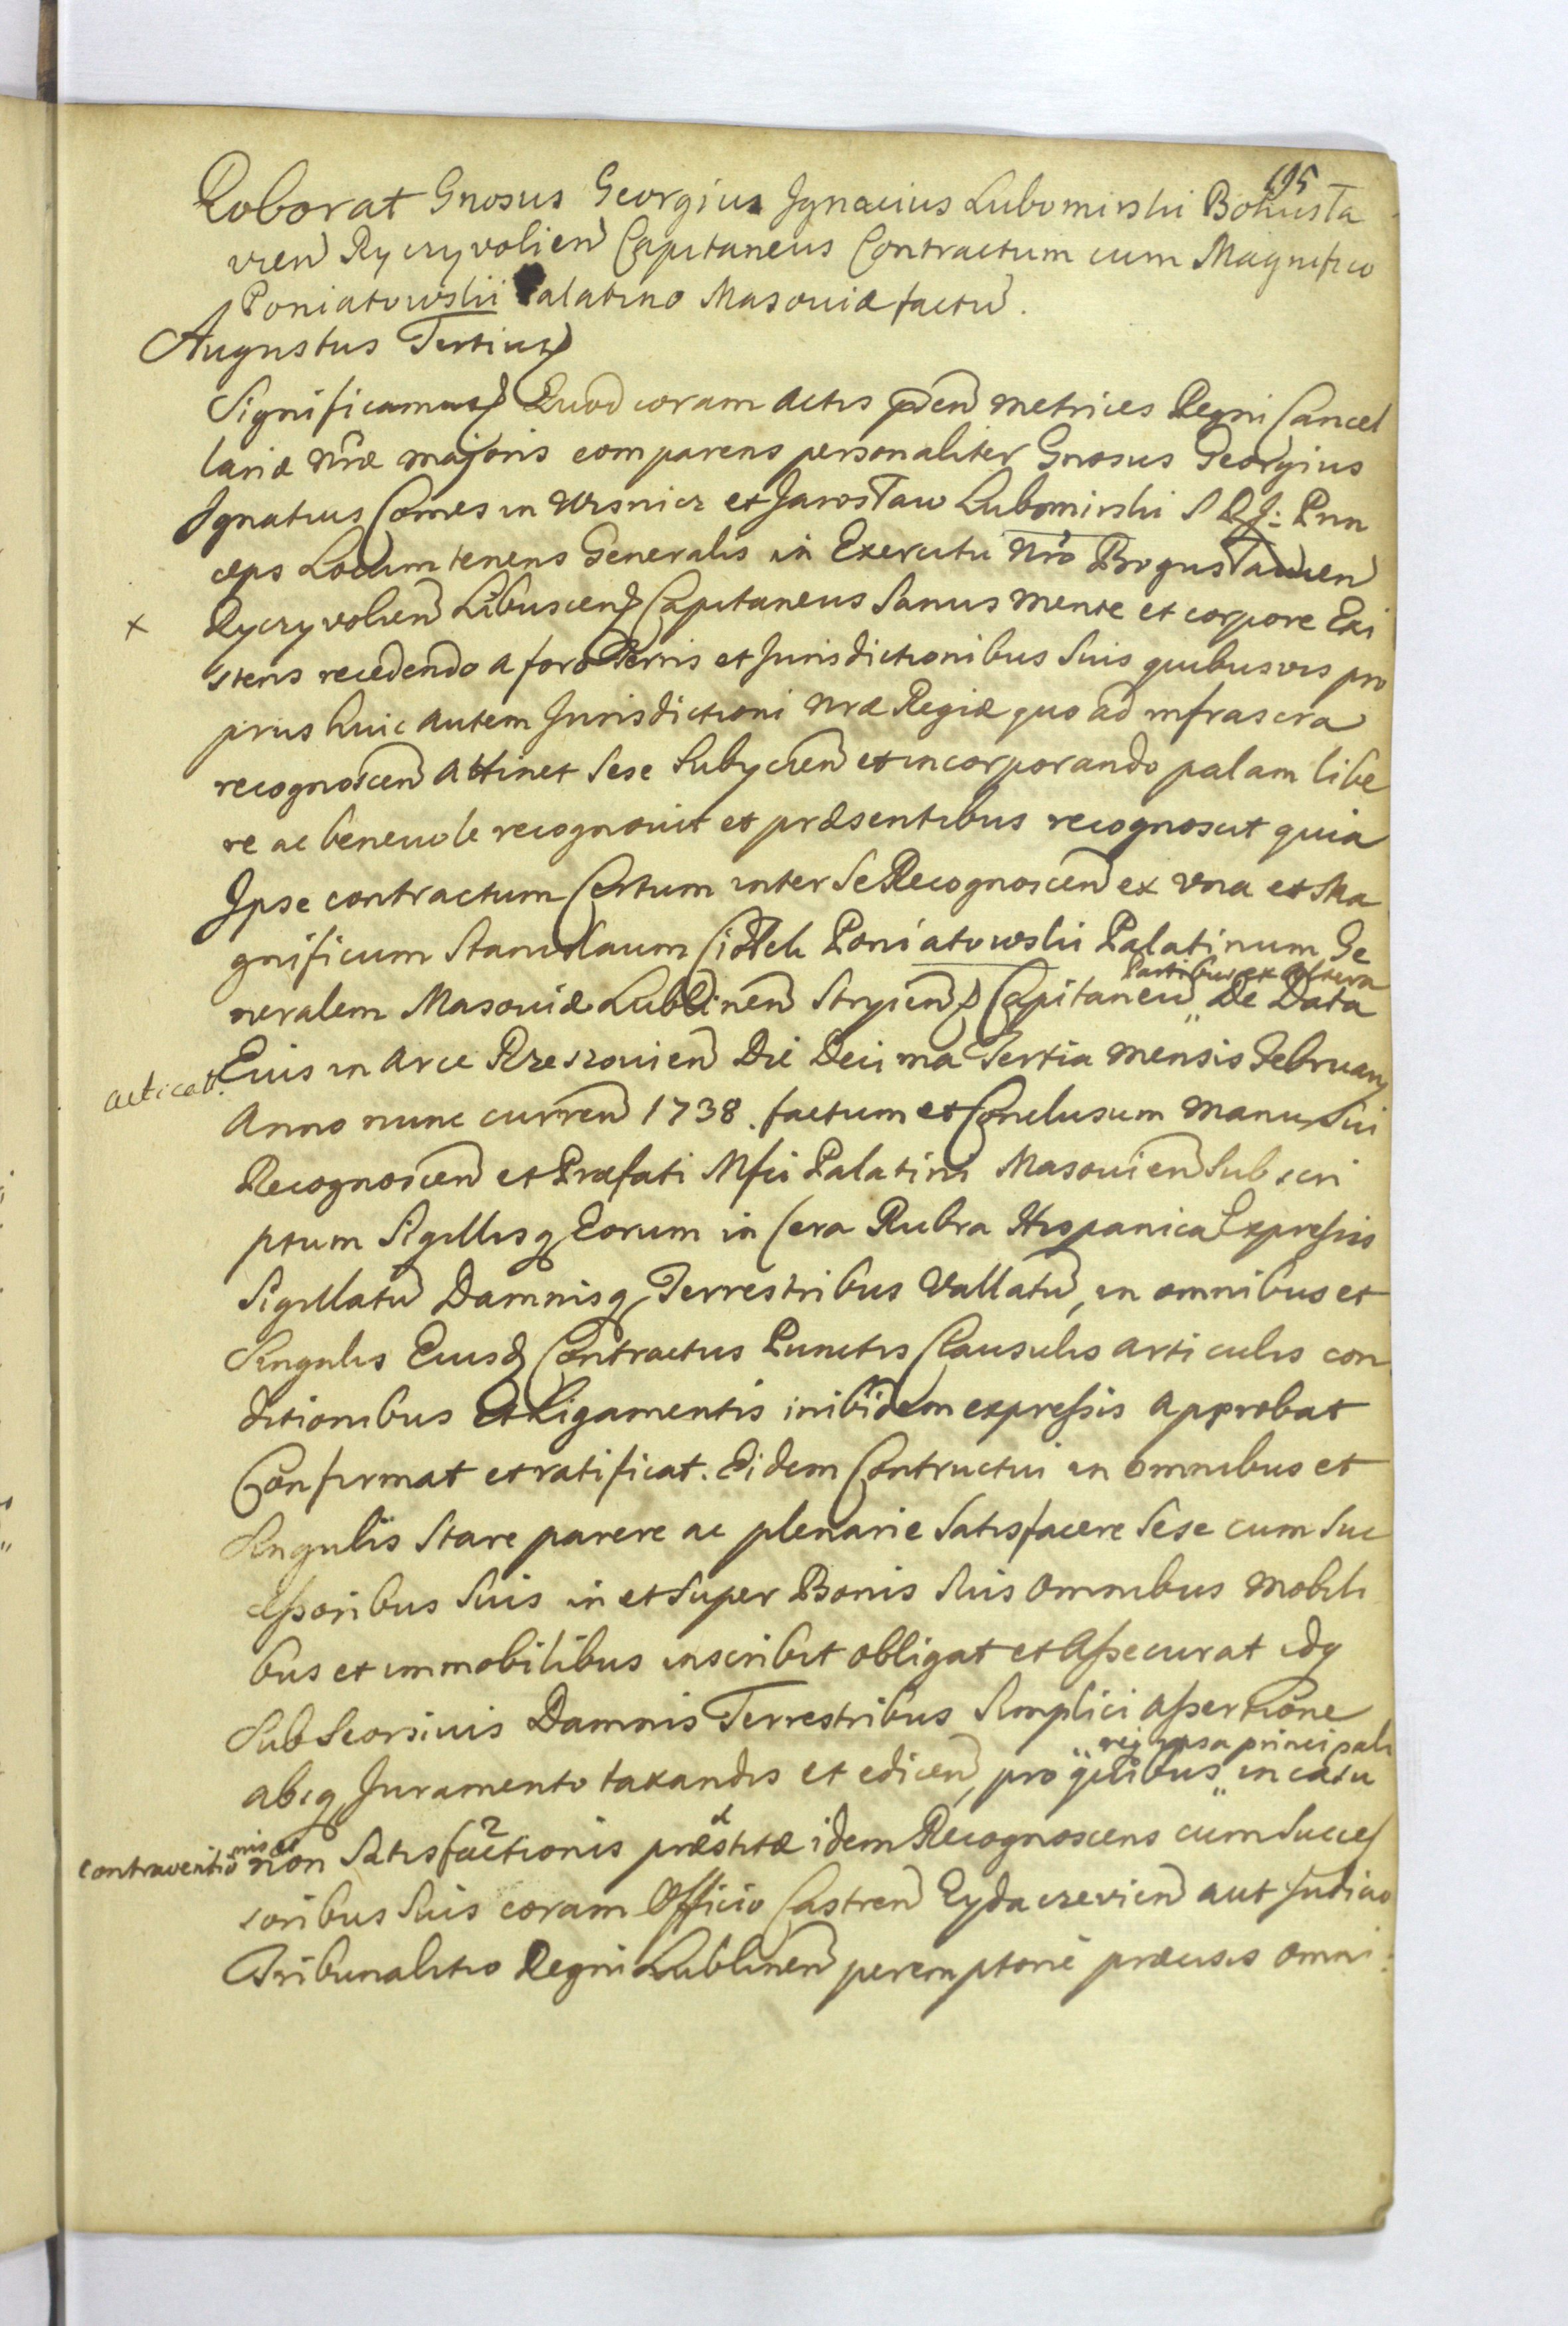 195
Roborat Gnosus Georgius Jgnacius Lubomirski Bohusła
vien Ryczyvolien Capitaneus Contractum cum Magnifico
Poniatowski Palatino Masoviæ factu.
Augustus Tertius
Significamus Quod coram Actis pñen metrices Regni Cancel
lariæ Nræ majoris comparens personaliter Gnosus Georgius
Jgnatius Comes in Wisnicz et Jarosław Lubomirski S R J: Prin
ceps Locum tenens Generalis in Exercitu Nro Bogusławien
x Ryczyvolien Libuscen Capitaneus Sanus mente et corpore Exi
stens recedendo a foro Terris et Jurisdictionibus Suis quibusvis pro
prius huic autem Jurisdictioni Nræ Regiæ quo ad infrascra
recognoscen Attinet Sese Subycien et incorporando palam libe
re ac benevole recognovit et præsentibus recognoscit quia
Jpse contractum Certum inter Se Recognoscen ex vna et Ma
gnificum Stanislaum Ciołek Poniatowski Palatinum Ge
Partibus ex altera
neralem Masoviæ Lublinen Stryien Capitaneu De Data
acticat. Eius in Arce Rzeszovien Die Decima Tertia mensis February
Anno nunc curren 1738. factum et Conclusum manu Sui
Recognoscen et Præfati Mfci Palatini Masovien Subscri
ptum Sigillisq Eorum in Cera Rubra Hispanica Expressis
Sigillatu Damnisq Terrestribus Vallatu, in omnibus et
Singulis Eiusd Contractus Punctis Clausulis articulis con
ditionibus et Ligamentis inibidem expressis Approbat
Confirmat et ratificat. Eidem Contractui in omnibus et
Singulis Stare parere ac plenarie Satisfacere Sese cum Suc
cessoribus Suis in et Super Bonis Suis Omnibus Mobili
bus et immobilibus inscribit obligat et Assecurat idq
Sub Seorsivis Damnis Terrestribus Simplici assertione
rej ipsa principali
absq Juramento taxandis et edicen, pro quibus in casu
contraventionis et non Satisfactionis præstitæ idem Recognoscens cum Succes
soribus Suis coram Officio Castren Eydaczevien aut Judicio
Tribunalitio Regni Lublinen peremptorie præcisis omni: